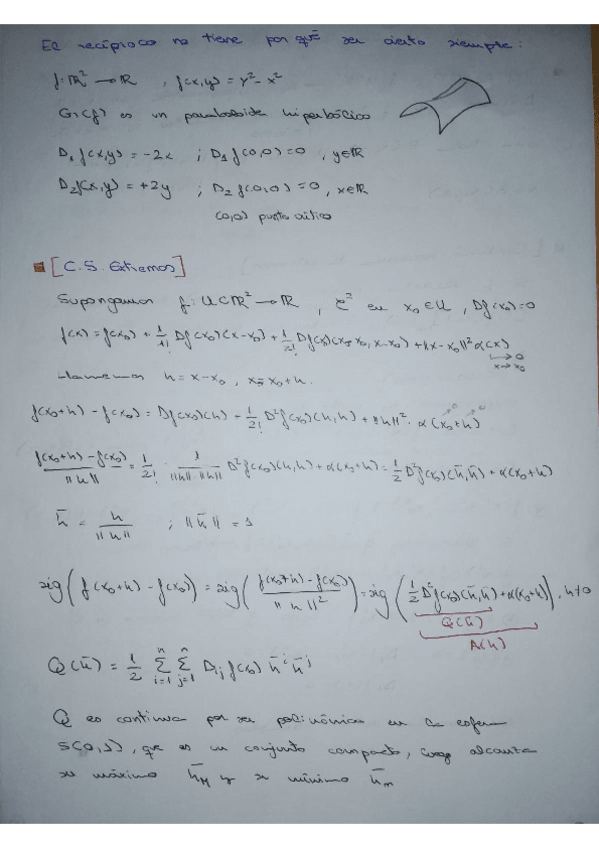 El recíproco no tiene por qué ser cierto siempre:
f: ℝ² → ℝ , f(x,y) = y² - x²
Gr(f) es un paraboloide hiperbólico
D₁ f(x,y) = -2x ; D₁ f(0,0) = 0 , y∈ℝ
D₂ f(x,y) = +2y ; D₂ f(0,0) = 0 , x∈ℝ
(0,0) punto crítico
[C.S. Extremos]
Supongamos f: U⊂ℝ² → ℝ , C² en x₀∈U , Df(x₀)=0
f(x) = f(x₀) + 1/1! Df(x₀)(x-x₀) + 1/2! Df(x₀)(x-x₀, x-x₀) + ||x-x₀||² α(x)
→ 0
x→x₀
Llamemos h = x-x₀ , x = x₀+h.
f(x₀+h) - f(x₀) = Df(x₀)(h) + 1/2! D²f(x₀)(h,h) + ||h||² · α(x₀+h)
f(x₀+h) - f(x₀) / ||h|| = 1/2! · 1/||h|| ||h|| D²f(x₀)(h,h) + α(x₀+h) = 1/2 D²f(x₀)(h̄,h̄) + α(x₀+h)
h̄ = h/||h|| ; ||h̄|| = 1
sig( f(x₀+h) - f(x₀) ) = sig( f(x₀+h) - f(x₀) / ||h||² ) = sig( 1/2 D²f(x₀)(h̄,h̄) + α(x₀+h) ), h≠0
Q(h̄)
A(h)
Q(h̄) = 1/2 Σⁿᵢ₌₁ Σⁿⱼ₌₁ Dᵢⱼ f(x₀) h̄ⁱ h̄ʲ
Q es continua por ser polinómica en la esfera
S(0,1), que es un conjunto compacto, luego alcanza
su máximo h̄_M y su mínimo h̄_m